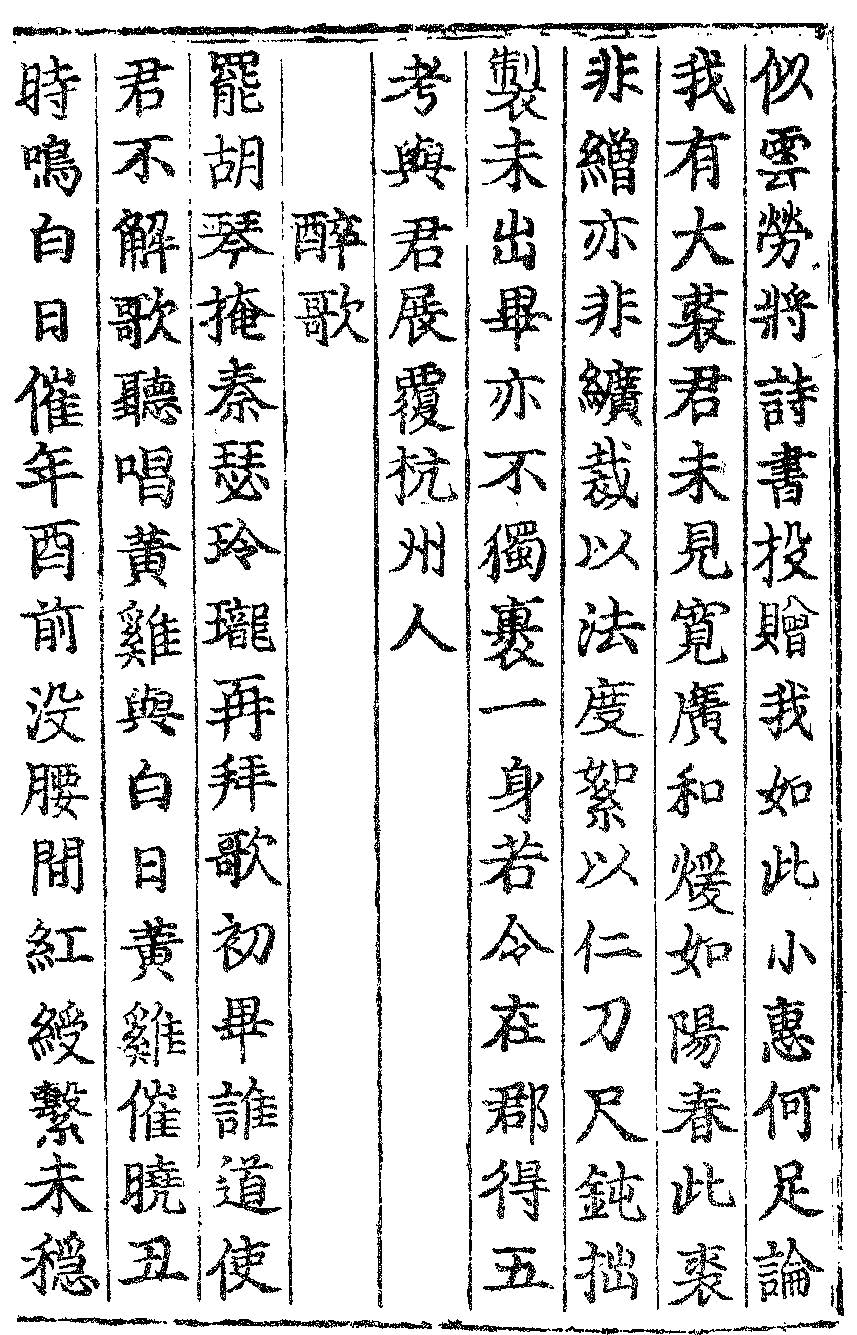 似雲勞將詩書投贈我如此小惠何足論
我有大裘君未見寛廣和煖如陽春此裘
非繒亦非纊裁以法度絮以仁刀尺鈍拙
製未出畢亦不獨裹一身若令在郡得五
考與君展覆杭州人
醉歌
罷胡琴掩秦瑟玲瓏再拜歌初畢誰道使
君不解歌聽唱黄雞與白日黄雞催曉丑
時鳴白日催年酉前没腰間紅綬繫未穏